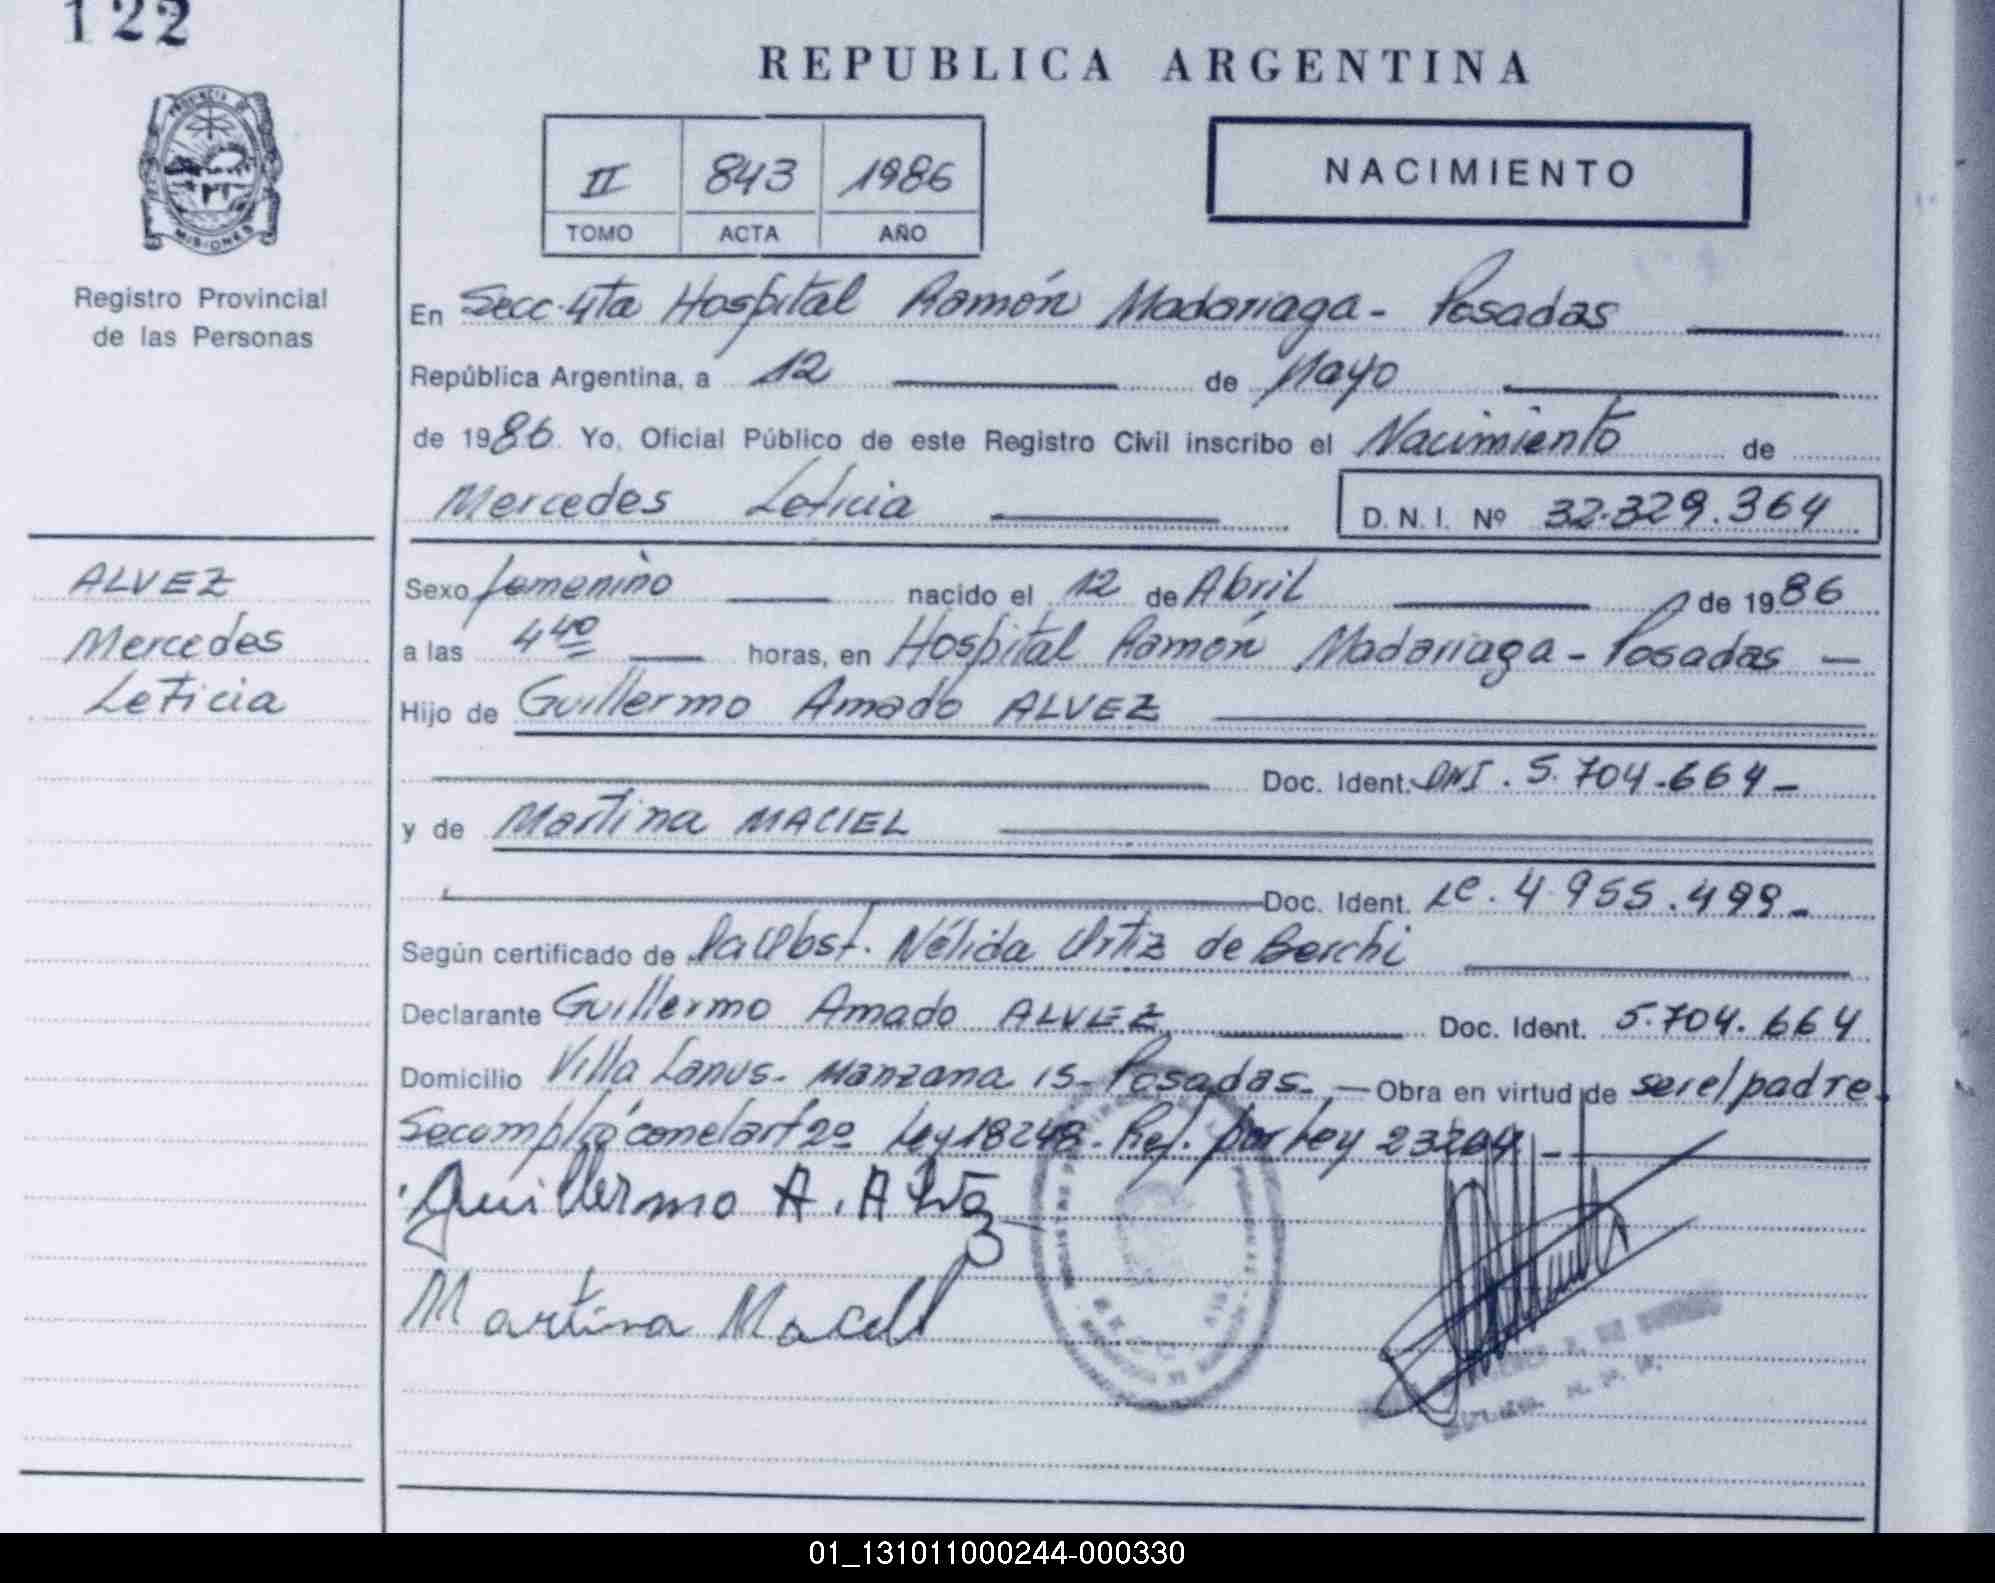 122
REPUBLICA ARGENTINA
PROVINCIA DE
MISIONES
II 843 1986
TOMO ACTA AÑO
NACIMIENTO
Registro Provincial
de las Personas
En Secc. 4ta Hospital Ramón Madariaga - Posadas
República Argentina, a 12 de Mayo
de 1986. Yo, Oficial Público de este Registro Civil inscribo el Nacimiento de
Mercedes Leticia D. N. I. Nº 32.329.364
ALVEZ
Mercedes
Leticia
Sexo femenino nacido el 12 de Abril de 1986
a las 4 40 horas, en Hospital Ramón Madariaga - Posadas —
Hijo de Guillermo Amado ALVEZ
Doc. Ident. DNI. 5.704.664 -
y de Martina MACIEL
Doc. Ident. LC. 4.955.499 -
Según certificado de Obst. Nélida Ortiz de Berchi
Declarante Guillermo Amado ALVEZ Doc. Ident. 5.704.664
Domicilio Villa Lanus - Manzana 15 - Posadas. — Obra en virtud de ser el padre.
Se cumplió con el art 2º Ley 18248 - Ref. por Ley 23264 -
Guillermo A. Alvez
Martina Maciel
01_131011000244-000330